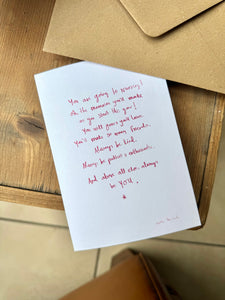 You are going to nursery!
Oh the memories you'll make
as you start this year!
You will grow, you'll learn,
You'll make so many friends.
Always be kind,
Always be patient & enthusiastic,
And above all else, always
be YOU.